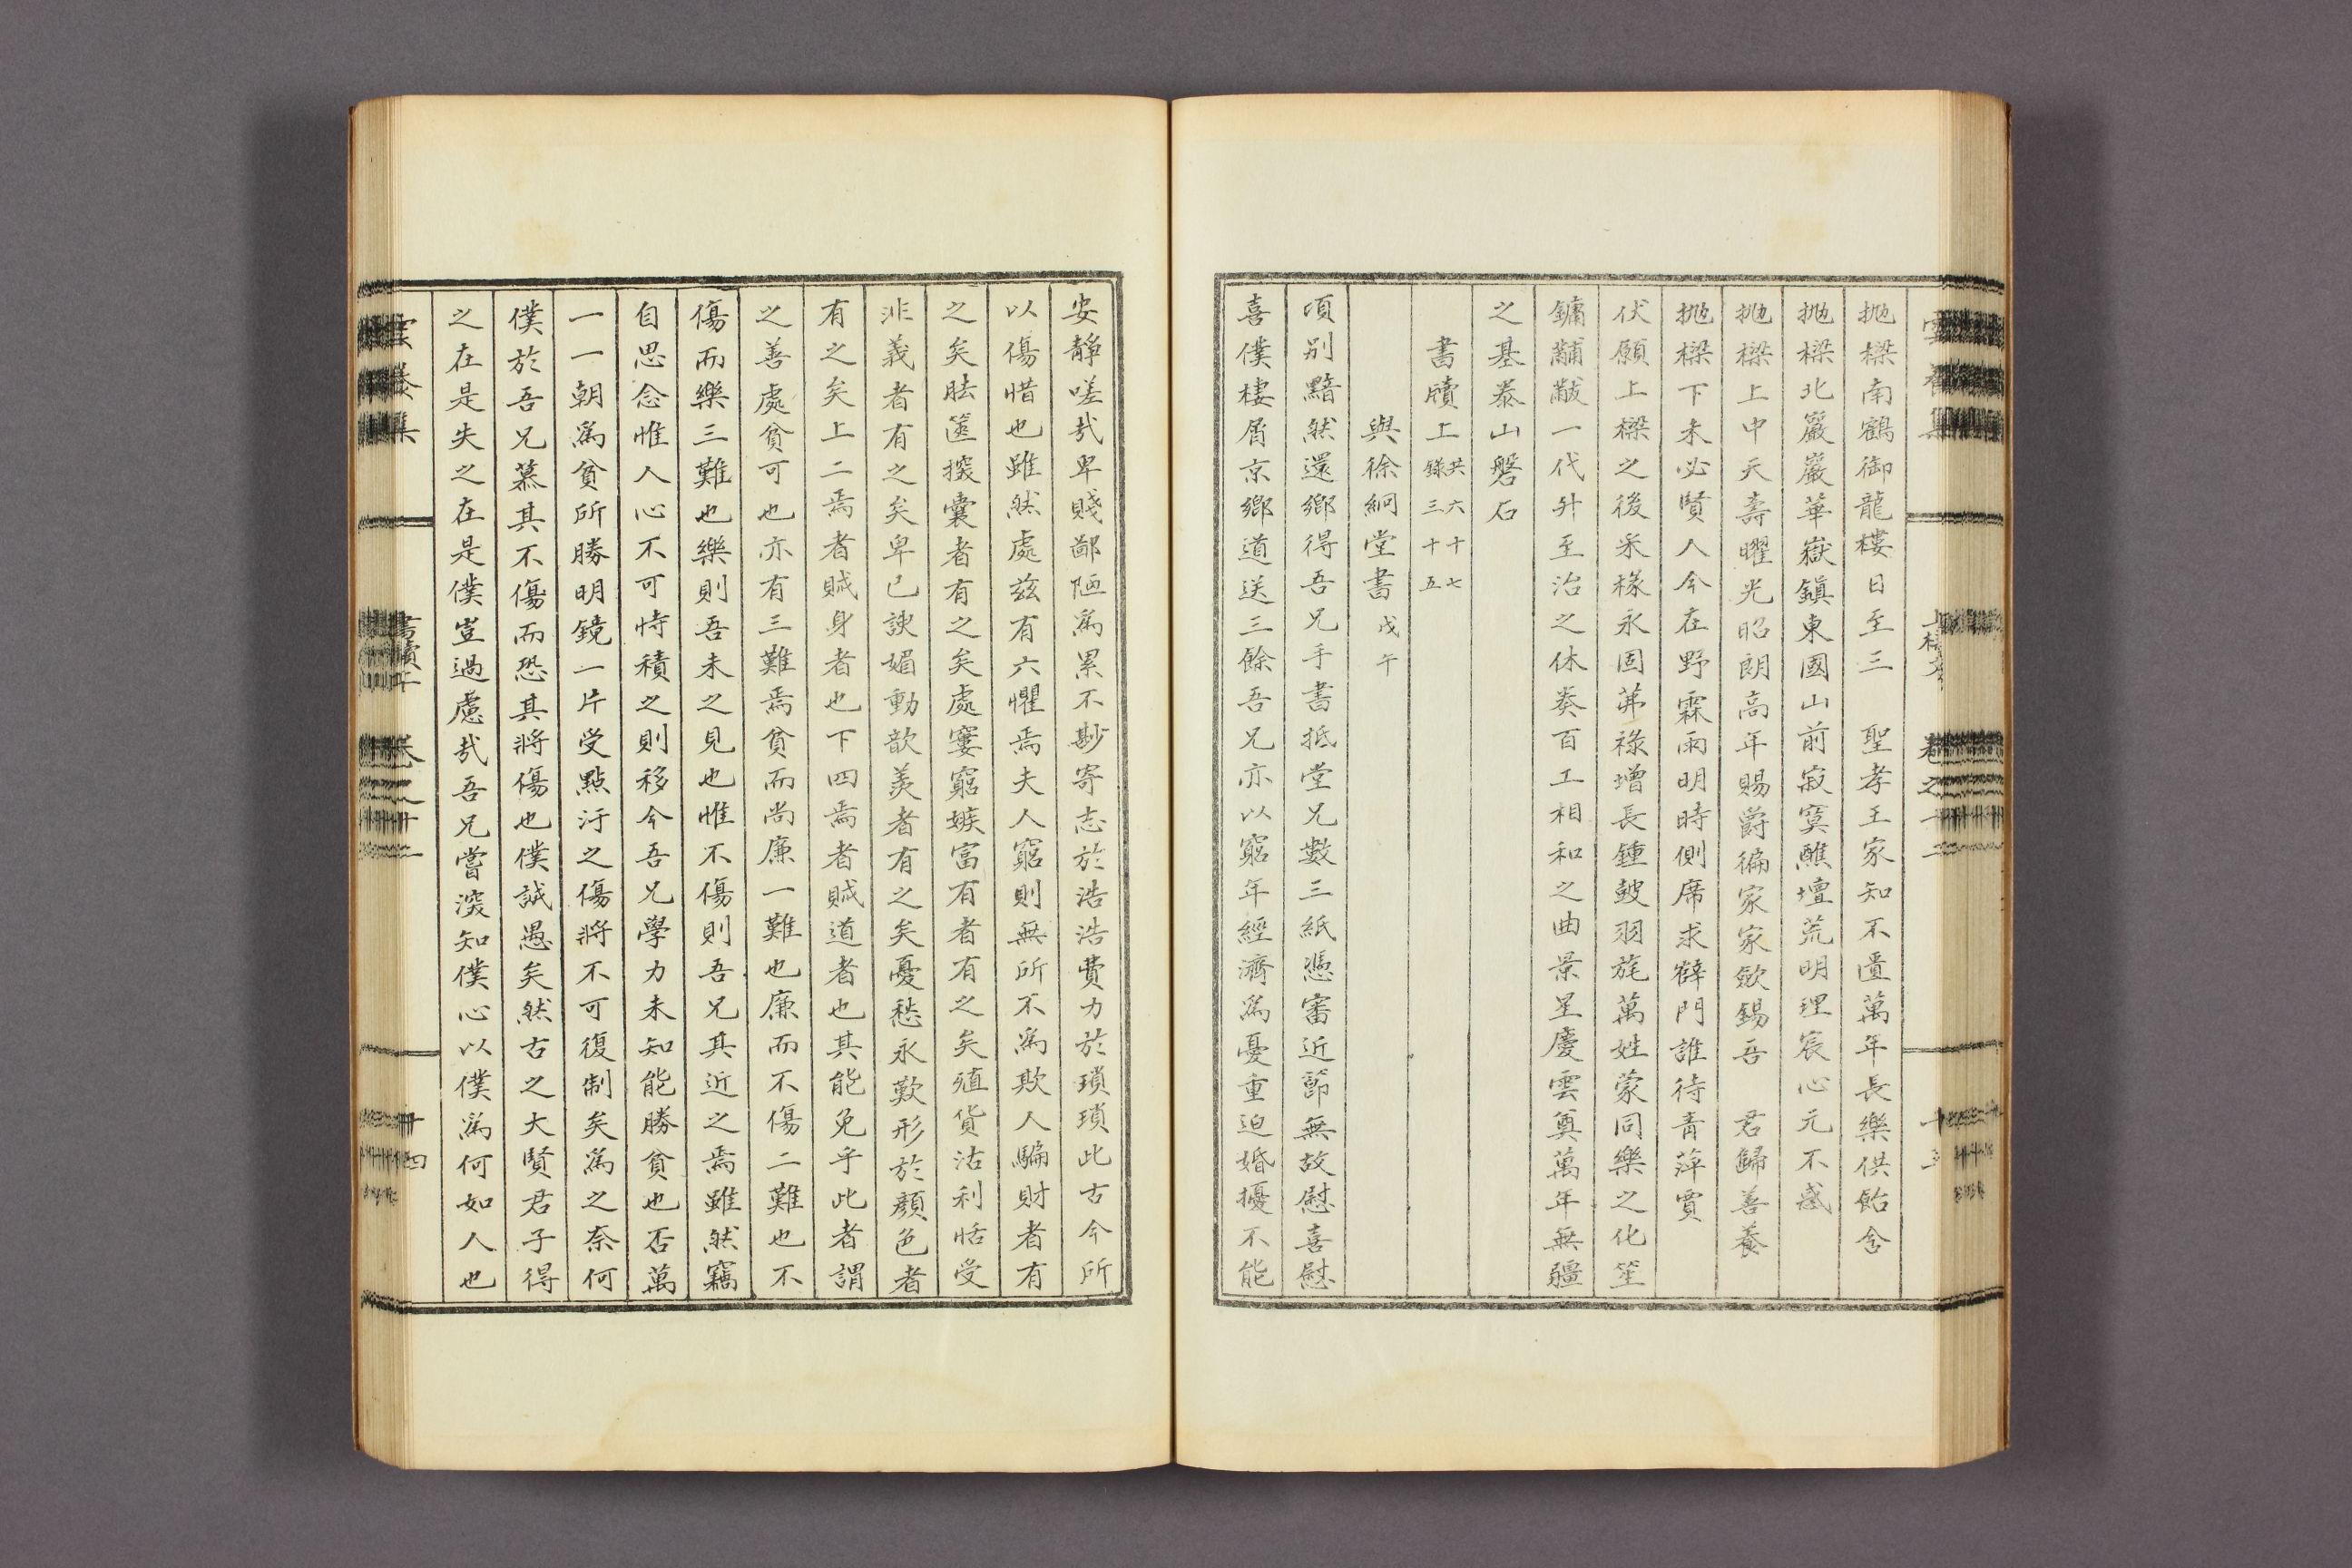 拋樑南鶴御龍樓日至三　聖孝王家知不匱萬年長樂供飴含
拋樑北巖巖華嶽鎭東國山前寂寞醮壇荒明理宸心元不惑
拋樑上中天壽曜光昭朗高年賜爵徧家家歛錫吾　君歸善養
拋樑下未必賢人今在野霖雨明時側席求辟門誰待靑萍賈
伏願上樑之後釆椽永固茀祿增長鍾皷羽旄萬姓蒙同樂之化笙
鏞黼黻一代升至治之休奏百工相和之曲景星慶雲奠萬年無疆
之基泰山磐石
書牘上 共六十七錄三十五
與徐絅堂書 戊午
頃別黯然還鄕得吾兄手書抵堂兄數三紙憑審近節無故慰喜慰
喜僕棲屑京鄕道送三餘吾兄亦以窮年經濟爲憂重迫婚擾不能
安靜嗟哉卑賤鄙陋爲累不尠寄志於浩浩費力於瑣瑣此古今所
以傷惜也雖然處玆有六懼焉夫人窮則無所不爲欺人騙財者有
之矣胠篋探囊者有之矣處窶窮嫉富有者有之矣殖貨沽利恬受
非義者有之矣卑己諛媚動歆羨者有之矣憂愁永歎形於顏色者
有之矣上二焉者賊身者也下四焉者賊道者也其能免乎此者謂
之善處貧可也亦有三難焉貧而尙廉一難也廉而不傷二難也不
傷而樂三難也樂則吾未之見也惟不傷則吾兄其近之焉雖然竊
自思念惟人心不可恃積之則移今吾兄學力未知能勝貧也否萬
一一朝爲貧所勝明鏡一片受點汙之傷將不可復制矣爲之奈何
僕於吾兄慕其不傷而恐其將傷也僕誠愚矣然古之大賢君子得
之在是失之在是僕豈過慮哉吾兄嘗深知僕心以僕爲何如人也
書牘上
卷之十二
十四